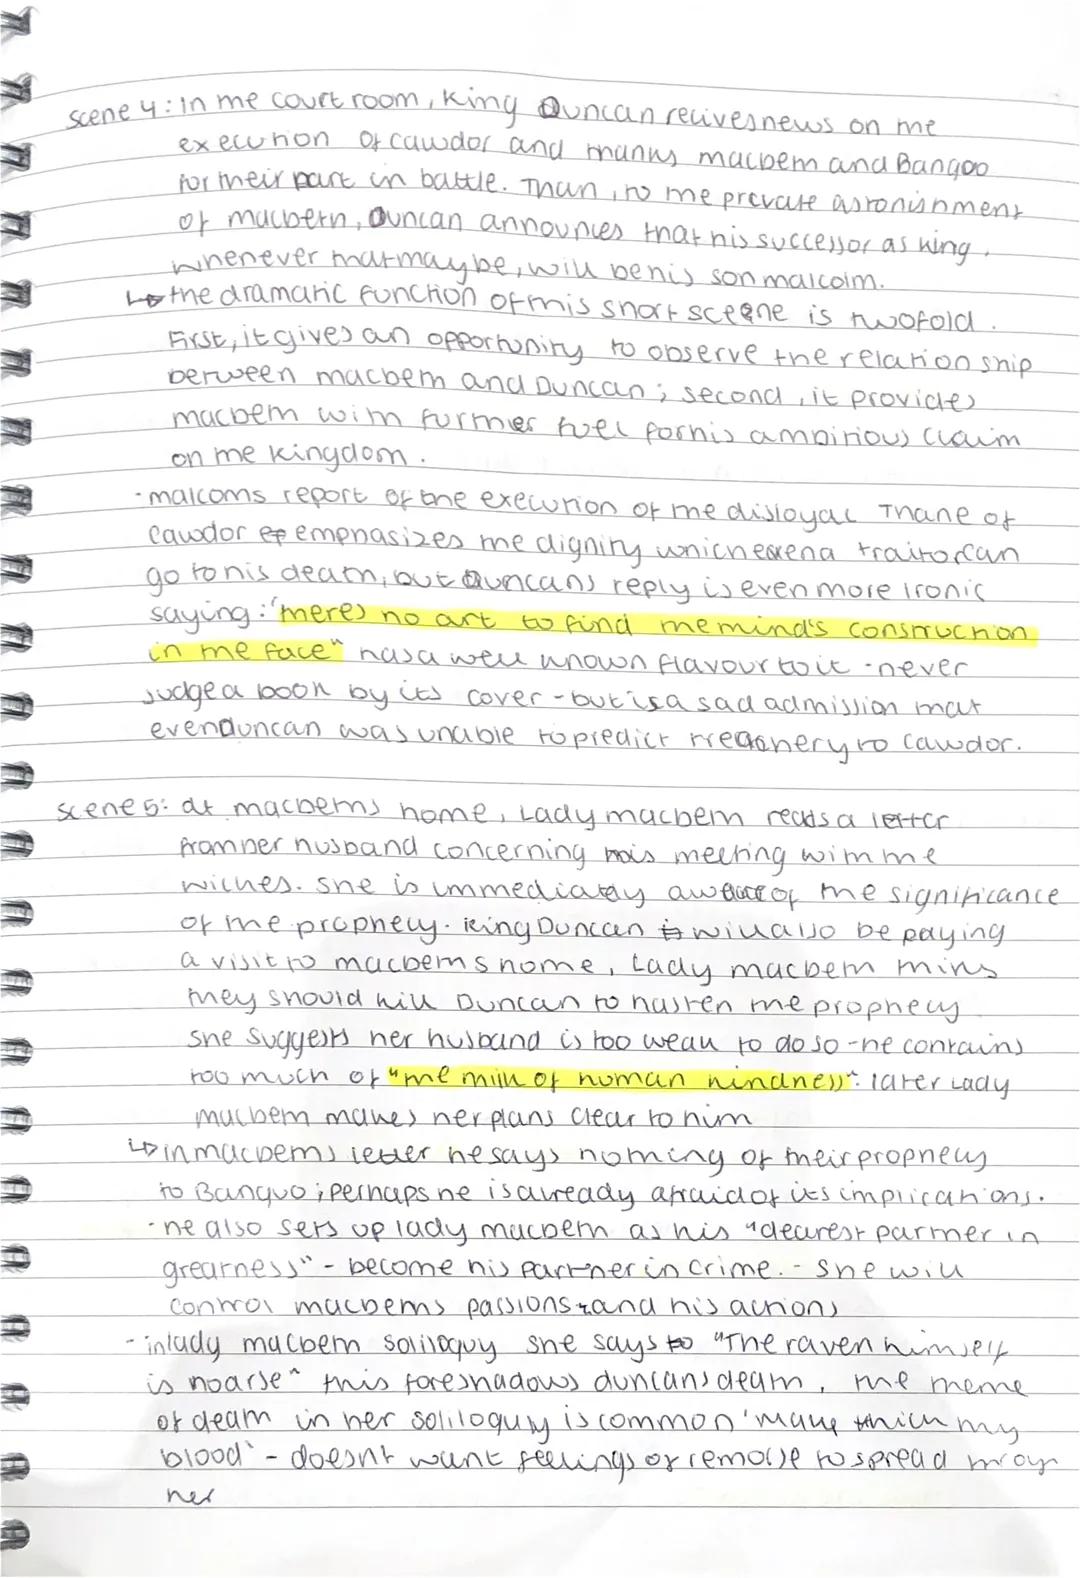 scene 4: In the court room, King Duncan recives news on the
execution of cawdor and thanks macbeth and Bangoo
for their part in battle. Than, to the prevate astonishment
of macbeth, Duncan announces that his successor as king,
whenever that may be, will be his son malcolm.
↳ the dramatic function of this short sceene is twofold.
First, it gives an opportunity to observe the relationship
between macbeth and Duncan; second, it provides
macbeth with further fuel for his ambitious claim
on the kingdom.
· malcoms report of the execution of the disloyal Thane of
Cawdor emphasizes the dignity which even a traitor can
go to his death, but Duncans reply is even more ironic
saying: "theres no art to find the mind's construction
in the face" has a well known flavour to it - never
judge a book by its cover - but is a sad admission that
even Duncan was unable to predict treachery to cawdor.
scene 5: at macbeths home, Lady macbeth reads a letter
from her husband concerning his meeting with the
witches. She is immediatey aware of the significance
of the prophecy. King Duncan will also be paying
a visit to macbeths home, Lady macbeth thinks
they should kill Duncan to hasten the prophecy
She suggests her husband is too weak to do so - he contains
too much of "the milk of human kindness". later Lady
macbeth makes her plans clear to him
↳ in macbeths letter he says nothing of their prophecy
to Banquo; perhaps he is already afraid of its implications.
- he also sets up lady macbeth as his "dearest partner in
greatness" - become his partner in crime. - She will
control macbeths passions and his actions
- in lady macbeth soliloquy she says to "The raven himself
is hoarse" this foreshadows duncans death, the theme
of death in her soliloquy is common 'make thick my
blood' - doesnt want feelings of remorse to spread throgh
her